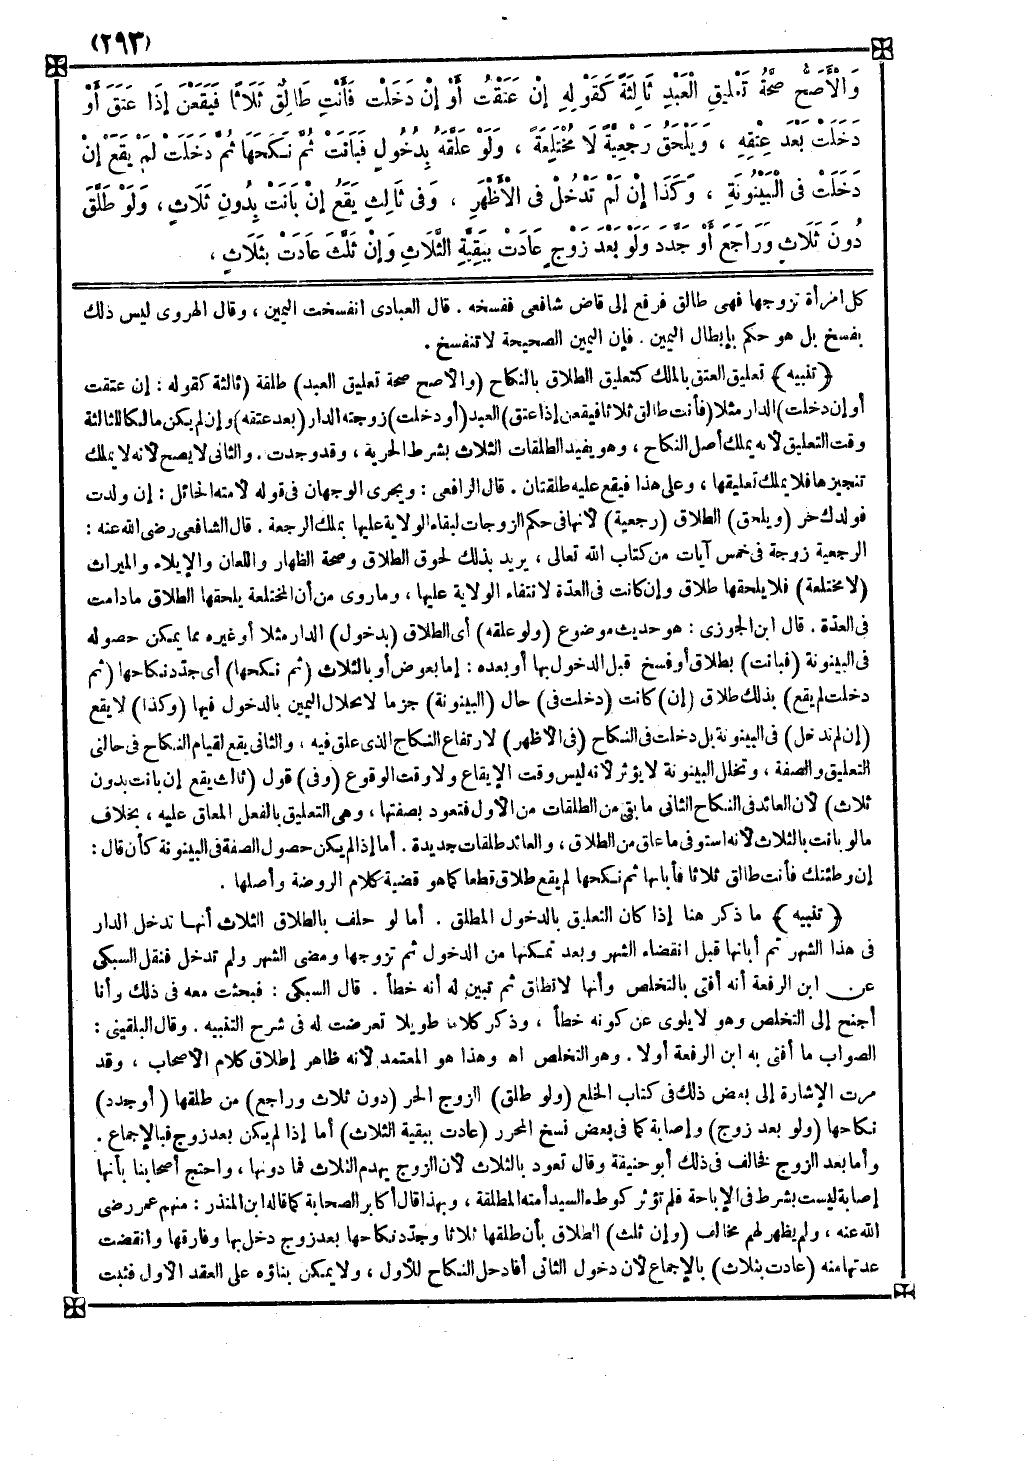 (٢٩٣)
وَالْأَصَحُّ صِحَّةُ تَعْلِيقِ الْعَبْدِ ثَالِثَةً كَقَوْلِهِ إِنْ عَتَقْتُ أَوْ إِنْ دَخَلْت فَأَنْتِ طَالِقٌ ثَلَاثًا فَيَقَعْنَ إِذَا عَتَقَ أَوْ
دَخَلَتْ بَعْدَ عِتْقِهِ ، وَيَلْحَقُ رَجْعِيَّةً لَا مُخْتَلِعَةً ، وَلَوْ عَلَّقَهُ بِدُخُولٍ فَبَانَتْ ثُمَّ نَكَحَهَا ثُمَّ دَخَلَتْ لَمْ يَقَعْ إِنْ
دَخَلَتْ فِى الْبَيْنُونَةِ ، وَكَذَا إِنْ لَمْ تَدْخُلْ فِى الْأَظْهَرِ ، وَفِى ثَالِثٍ يَقَعُ إِنْ بَانَتْ بِدُونِ ثَلَاثٍ ، وَلَوْ طَلَّقَ
دُونَ ثَلَاثٍ وَرَاجَعَ أَوْ جَدَّدَ وَلَوْ بَعْدَ زَوْجٍ عَادَتْ بِبَقِيَّةِ الثَّلَاثِ وَإِنْ ثَلَّثَ عَادَتْ بِثَلَاثٍ ،
كل امرأة تزوجها فهى طالق فرفع إلى قاض شافعى ففسخه . قال العبادى انفسخت اليمين ، وقال الهروى ليس ذلك
بفسخ بل هو حكم بإبطال اليمين . فإن اليمين الصحيحة لا تنفسخ .
﴿تنبيه﴾ تعليق العتق بالملك كتعليق الطلاق بالنكاح (والأصح صحة تعليق العبد) طلقة (ثالثة كقوله : إن عتقت
أو إن دخلت) الدار مثلا (فأنت طالق ثلاثا فيقعن إذا عتق) العبد (أو دخلت) زوجته الدار (بعد عتقه) وإن لم يكن مالكا للثالثة
وقت التعليق لأنه يملك أصل النكاح ، وهو يفيد الطلقات الثلاث بشرط الحرية ، وقد وجدت . والثانى لا يصح لأنه لا يملك
تنجيزها فلا يملك تعليقها ، وعلى هذا فيقع عليه طلقتان . قال الرافعى : ويجرى الوجهان فى قوله لأمته الحائل : إن ولدت
فولدك حر (ويلحق) الطلاق (رجعية) لأنها فى حكم الزوجات لبقاء الولاية عليها بملك الرجعة . قال الشافعى رضى الله عنه :
الرجعية زوجة فى خمس آيات من كتاب الله تعالى ، يريد بذلك لحوق الطلاق وصحة الظهار واللعان والإيلاء والميراث
(لا مختلعة) فلا يلحقها طلاق وإن كانت فى العدة لانتفاء الولاية عليها ، وما روى من أن المختلعة يلحقها الطلاق مادامت
فى العدة . قال ابن الجوزى : هو حديث موضوع (ولو علقه) أى الطلاق (بدخول) الدار مثلا أو غيره مما يمكن حصوله
فى البينونة (فبانت) بطلاق أو فسخ قبل الدخول بها أو بعده : إما بعوض أو بالثلاث (ثم نكحها) أى جدد نكاحها (ثم
دخلت لم يقع) بذلك طلاق (إن) كانت (دخلت فى) حال (البينونة) جزما لانحلال اليمين بالدخول فيها (وكذا) لا يقع
(إن لم تدخل) فى البينونة بل دخلت فى النكاح (فى الأظهر) لارتفاع النكاح الذى علق فيه ، والثانى يقع لقيام النكاح فى حالتى
التعليق والصفة ، وتخلل البينونة لا يؤثر لأنه ليس وقت الإيقاع ولا وقت الوقوع (وفى) قول (ثالث يقع إن بانت بدون
ثلاث) لأن العائد فى النكاح الثانى ما بقى من الطلقات من الأول فتعود بصفتها ، وهى التعليق بالفعل المعلق عليه ، بخلاف
مالو بانت بالثلاث لأنه استوفى ما علق من الطلاق ، والعائد طلقات جديدة . أما إذا لم يكن حصول الصفة فى البينونة كأن قال :
إن وطئتك فأنت طالق ثلاثا فأبانها ثم نكحها لم يقع طلاق قطعا كما هو قضية كلام الروضة وأصلها .
﴿تنبيه﴾ ما ذكر هنا إذا كان التعليق بالدخول المطلق . أما لو حلف بالطلاق الثلاث أنها تدخل الدار
فى هذا الشهر ثم أبانها قبل انقضاء الشهر وبعد تمكنها من الدخول ثم تزوجها ومضى الشهر ولم تدخل فنقل السبكى
عن ابن الرفعة أنه أفتى بالتخلص وأنها لا تطلق ثم تبين له أنه خطأ . قال السبكى : فبحثت معه فى ذلك وأنا
أجنح إلى التخلص وهو لا يلوى عن كونه خطأ ، وذكر كلاما طويلا تعرضت له فى شرح التنبيه . وقال البلقينى :
الصواب ما أفتى به ابن الرفعة أولا . وهو التخلص اه وهذا هو المعتمد لأنه ظاهر إطلاق كلام الأصحاب ، وقد
مرت الإشارة إلى بعض ذلك فى كتاب الخلع (ولو طلق) الزوج الحر (دون ثلاث وراجع) من طلقها (أو جدد)
نكاحها (ولو بعد زوج) وإصابة كما فى بعض نسخ المحرر (عادت ببقية الثلاث) أما إذا لم يكن بعد زوج فبالإجماع .
وأما بعد الزوج فخالف فى ذلك أبو حنيفة وقال تعود بالثلاث لأن الزوج يهدم الثلاث فما دونها ، واحتج أصحابنا بأنها
إصابة ليست بشرط فى الإباحة فلم تؤثر كوطء السيد أمته المطلقة ، وبهذا قال أكابر الصحابة كما قاله ابن المنذر : منهم عمر رضى
الله عنه ، ولم يظهر لهم مخالف (وإن ثلث) الطلاق بأن طلقها ثلاثا وجدد نكاحها بعد زوج دخل بها وفارقها وانقضت
عدتها منه (عادت بثلاث) بالإجماع لأن دخول الثانى أفاد حل النكاح للأول ، ولا يمكن بناؤه على العقد الأول فثبت